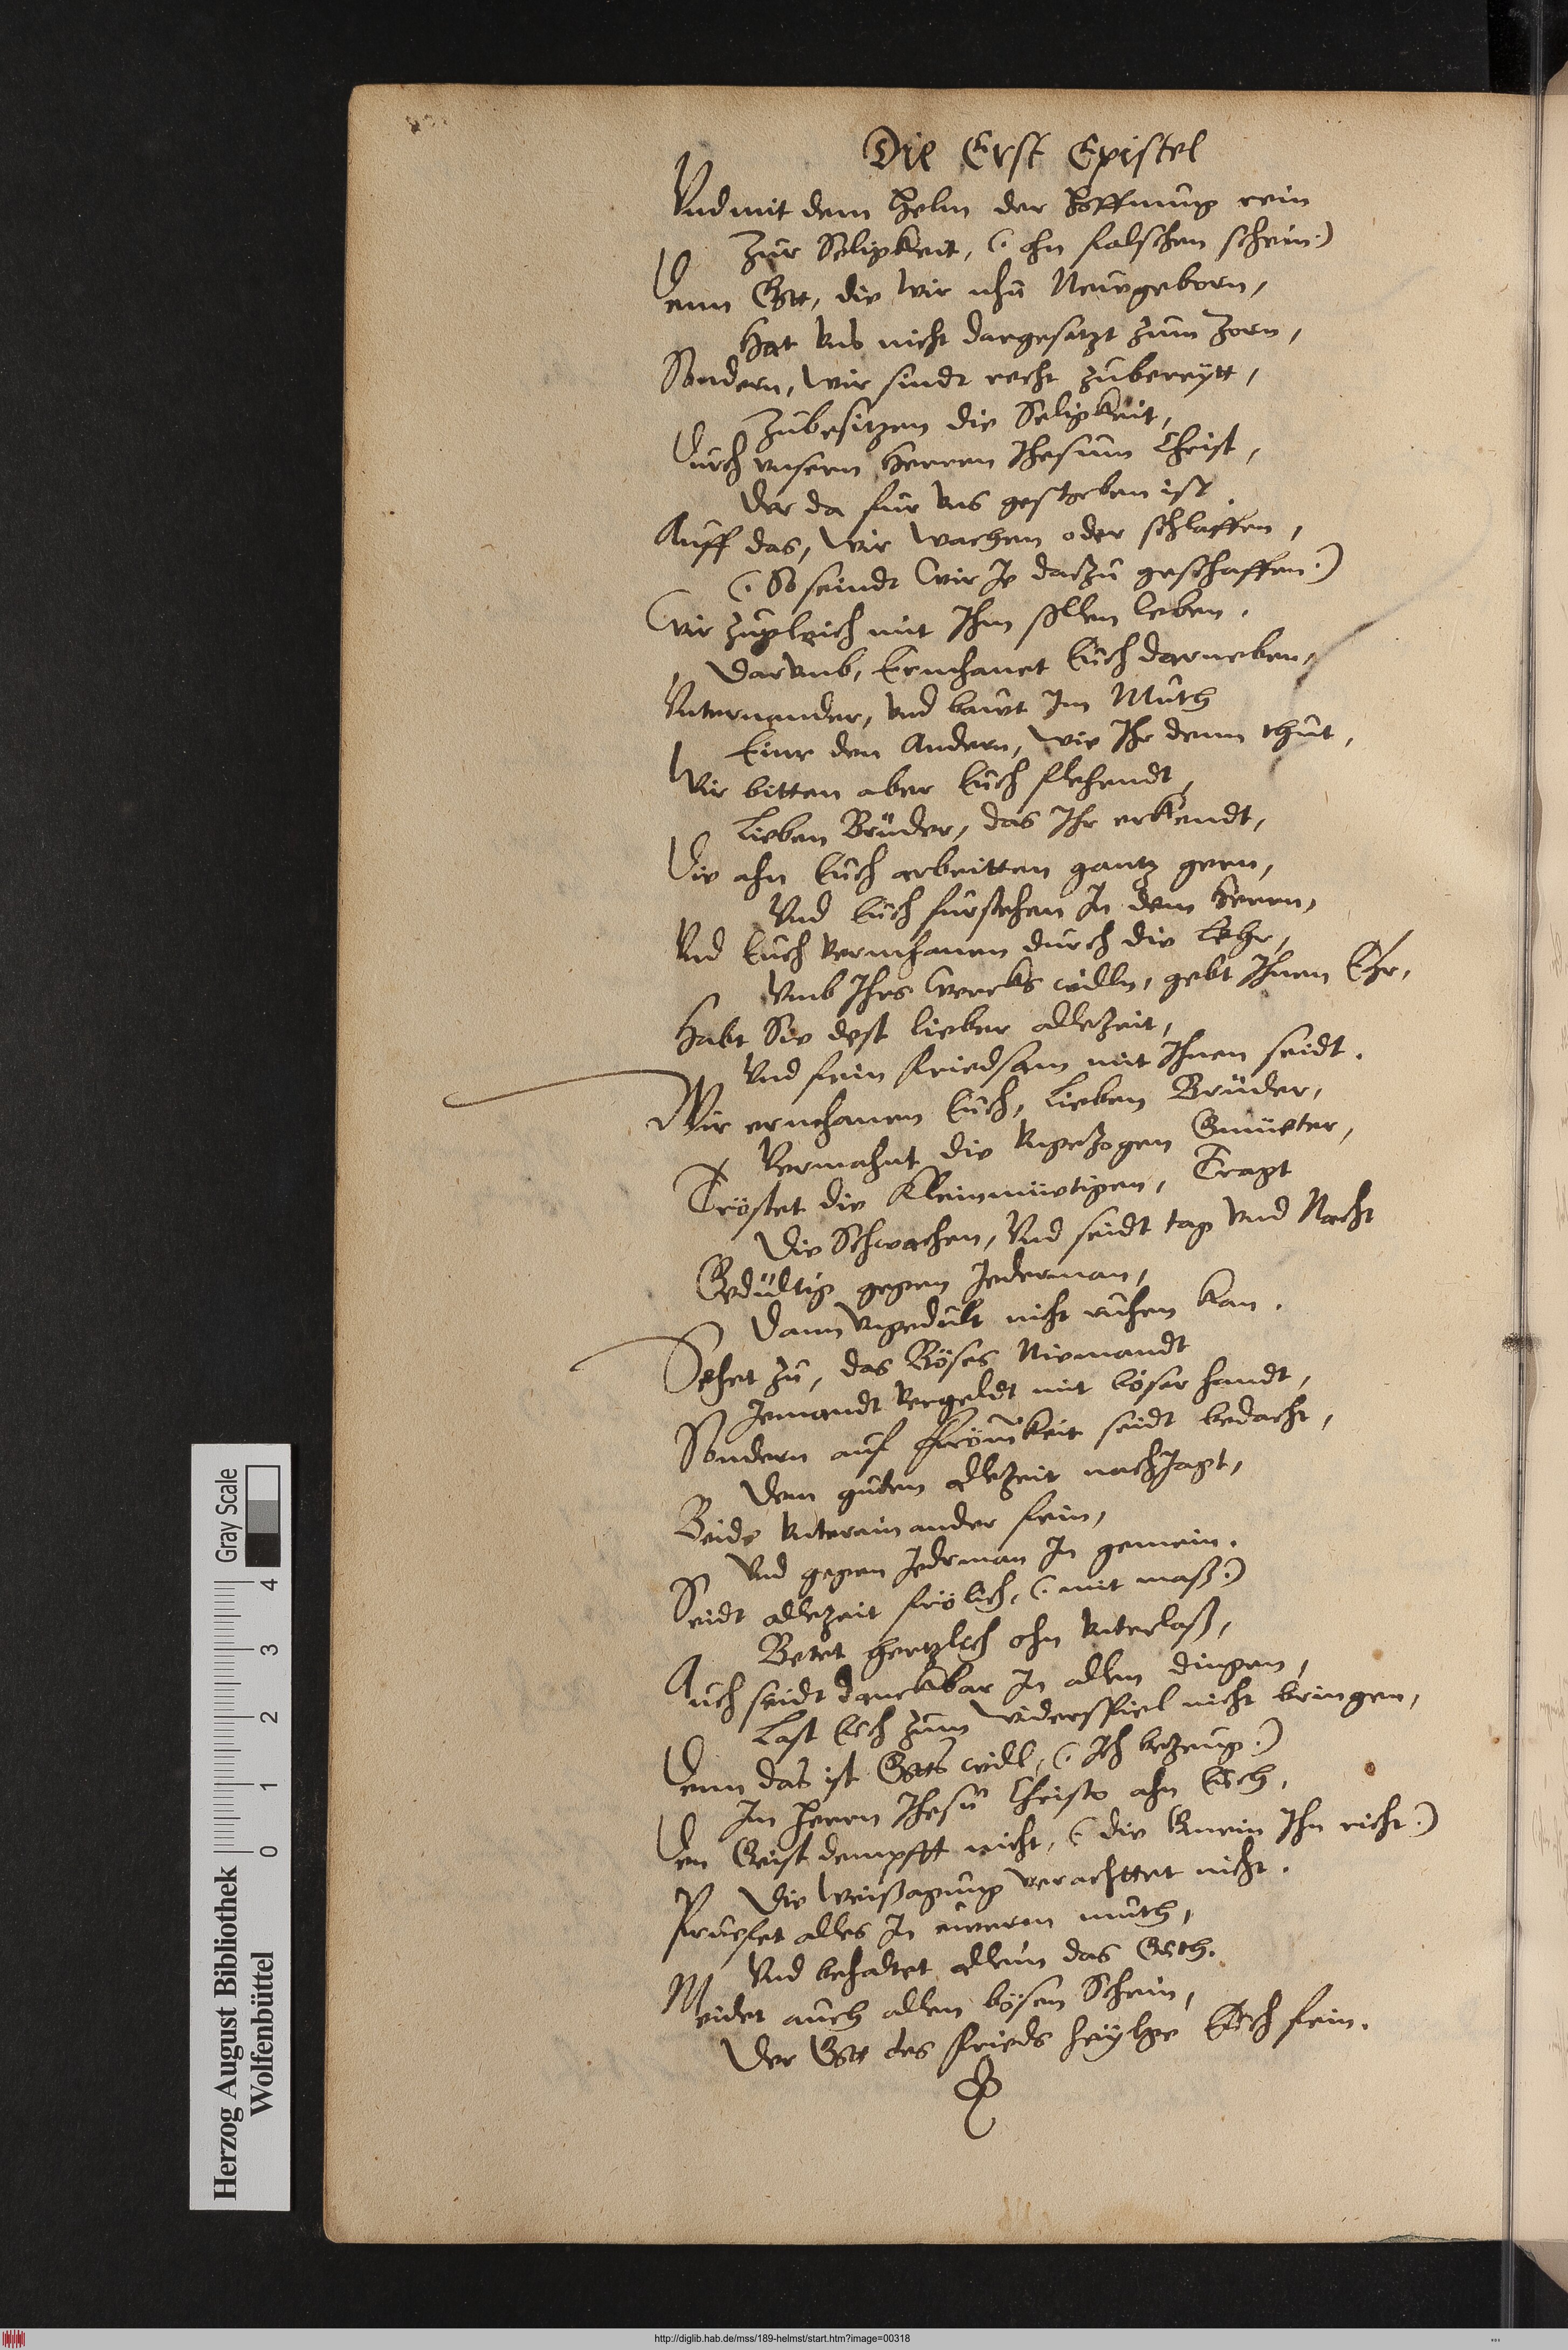 Die Erst Epistel
Vnd mit dem Helm der Hoffnung rein
Zur Seligkeit, (. ohn falschen schein.)
Denn Gott, die wir nhu Neuwgeborn,
Hat vns nicht dargesetzt zum Zorn,
Sondern, wir sindt recht zubereytt,
Zubesitzen die Seligkeit,
Durch vnsern Herren Jhesum Christ,
Der da fur vns gestorben ist.
Auff das, wir wachen oder schlaffen,
(. So seindt wir Je dazu geschaffen.)
Wir zugleich mit Ihm sollen leben.
Darumb, Ermhanet Euch darneben,
Vnternander, vnd bauwt Im Muth
Einr den Andern, wie Ihr denn thut,
Wir bitten aber Euch flehendt,
Lieben Brüder, das Ihr erkendt,
Die ahn Euch arbeitten gantz gern,
Vnd Euch furstehen In dem Herrn,
Vnd Euch vermhanen durch die Lehr,
Vmb Ihrs Wercks willn, gebt Ihnen Ehr,
Habt Sie dest lieber allezeit,
Vnd fein friedsam mit Ihnen seidt.
Wir ermhanen Euch, Lieben Brüder,
Vermahnt die vngezogen Gmüeter,
Tröstet die Kleinmüetigen, Tragt
Die Schwachen, Vnd seidt tag vnd Nacht
Gedültig gegen Jederman,
Dann Vngedult nicht ruhen kan.
Sehet zu, das Böses Niemandt
Jemandt vergeldt mit böser handt,
Sondern auf frömkeit seidt bedacht,
Dem guten allezeit nachJagt,
Beide vntereinander fein,
Vnd gegen Jedrman In gemein.
Seidt allezeit frölich, (. mit maß.)
Betet hertzlich ohn vnterlaß,
Auch seidt danckbar In allen dingen,
Last Euch zum widerspiel nicht bringen,
Denn das ist Gotts will, (. Ich bezeug.)
Im Herrn Jhesu Christo ahn Euch.
Den Geist dempfft nicht, (. die Gmein Ihn richt.)
Die Weißagung verachttet nicht.
Pruefet alles In euwerm muth,
Vnd behaltet allein das Guth.
Meidet auch allen bösen Schein,
Der Gott des frieds heylge Euch fein.
Herzog August Bibliothek
Wolfenbüttel
0 1 2 3 4
Gray Scale
http://diglib.hab.de/mss/189-helmst/start.htm?image=00318